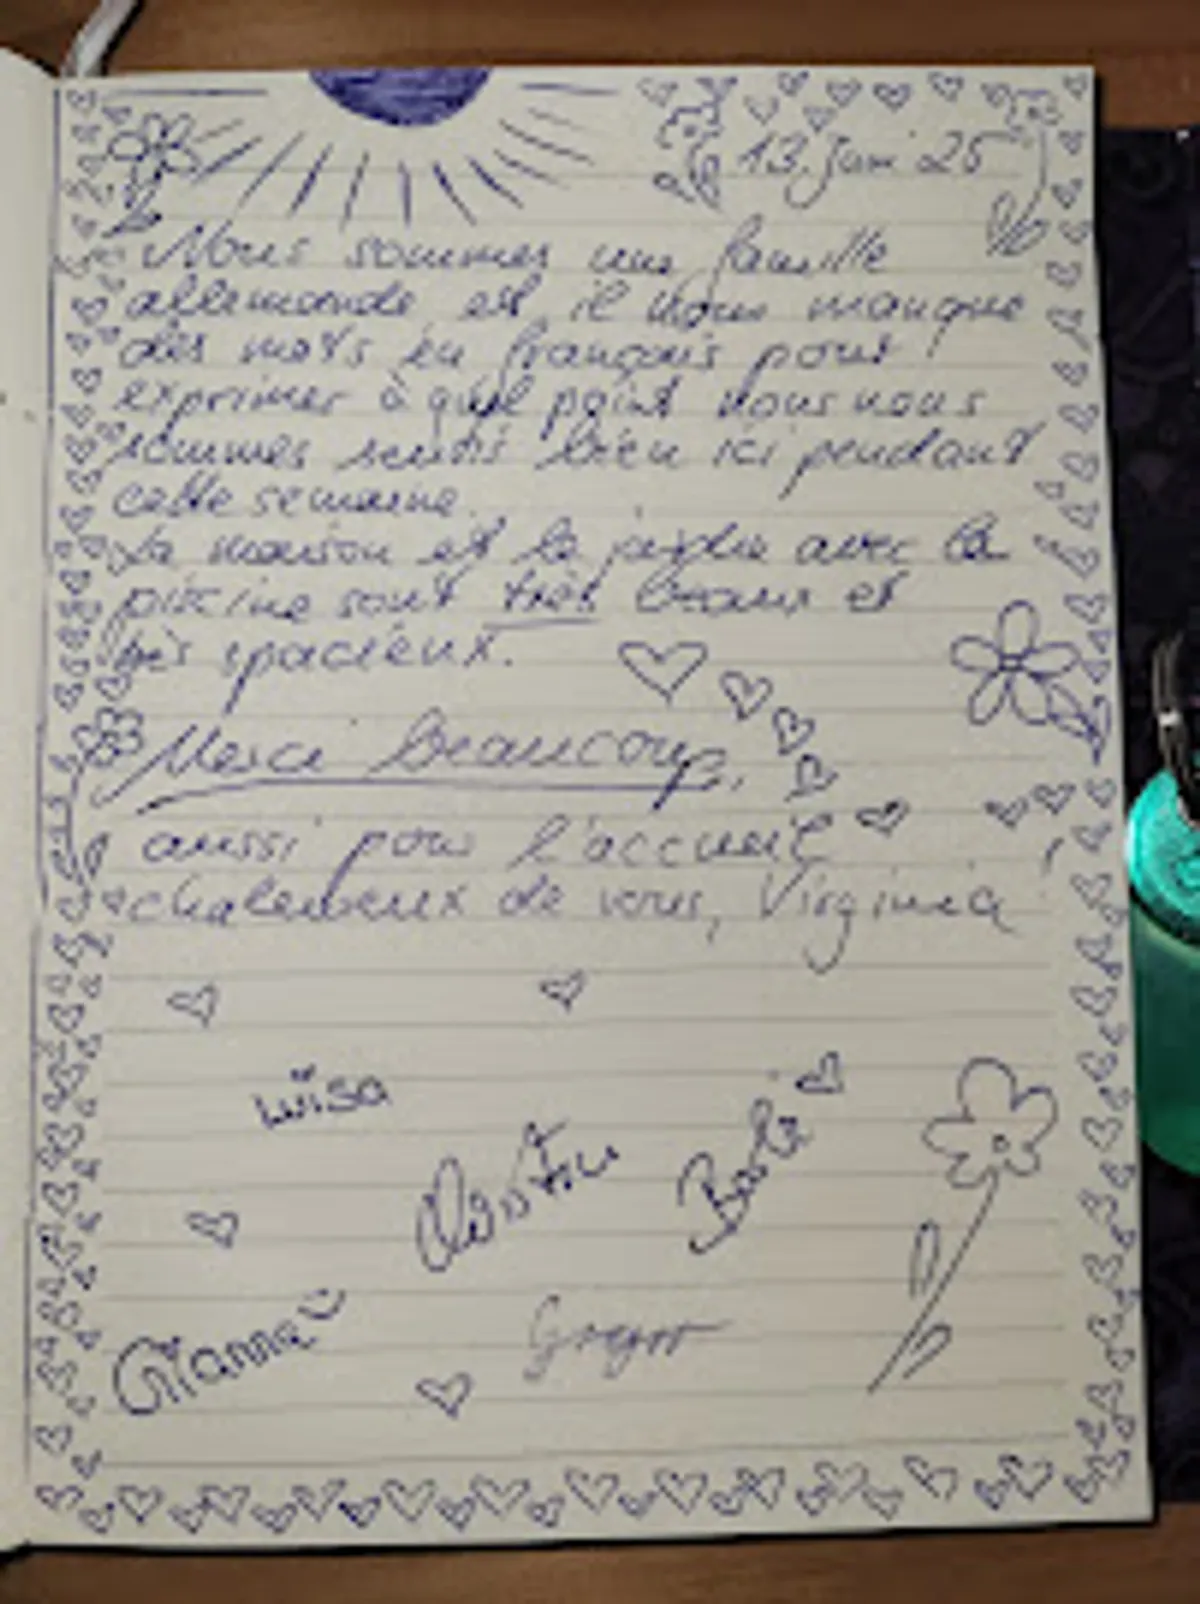 13. Juni 25
Nous sommes une famille
allemande et il nous manque
des mots en français pour
exprimer à quel point nous nous
sommes sentis bien ici pendant
cette semaine.
La maison et le jardin avec la
piscine sont très beaux et
très spacieux.
Merci beaucoup,
aussi pour l'accueil
chaleureux de vous, Virginia
Luisa
Christin
Gianna
Gregor